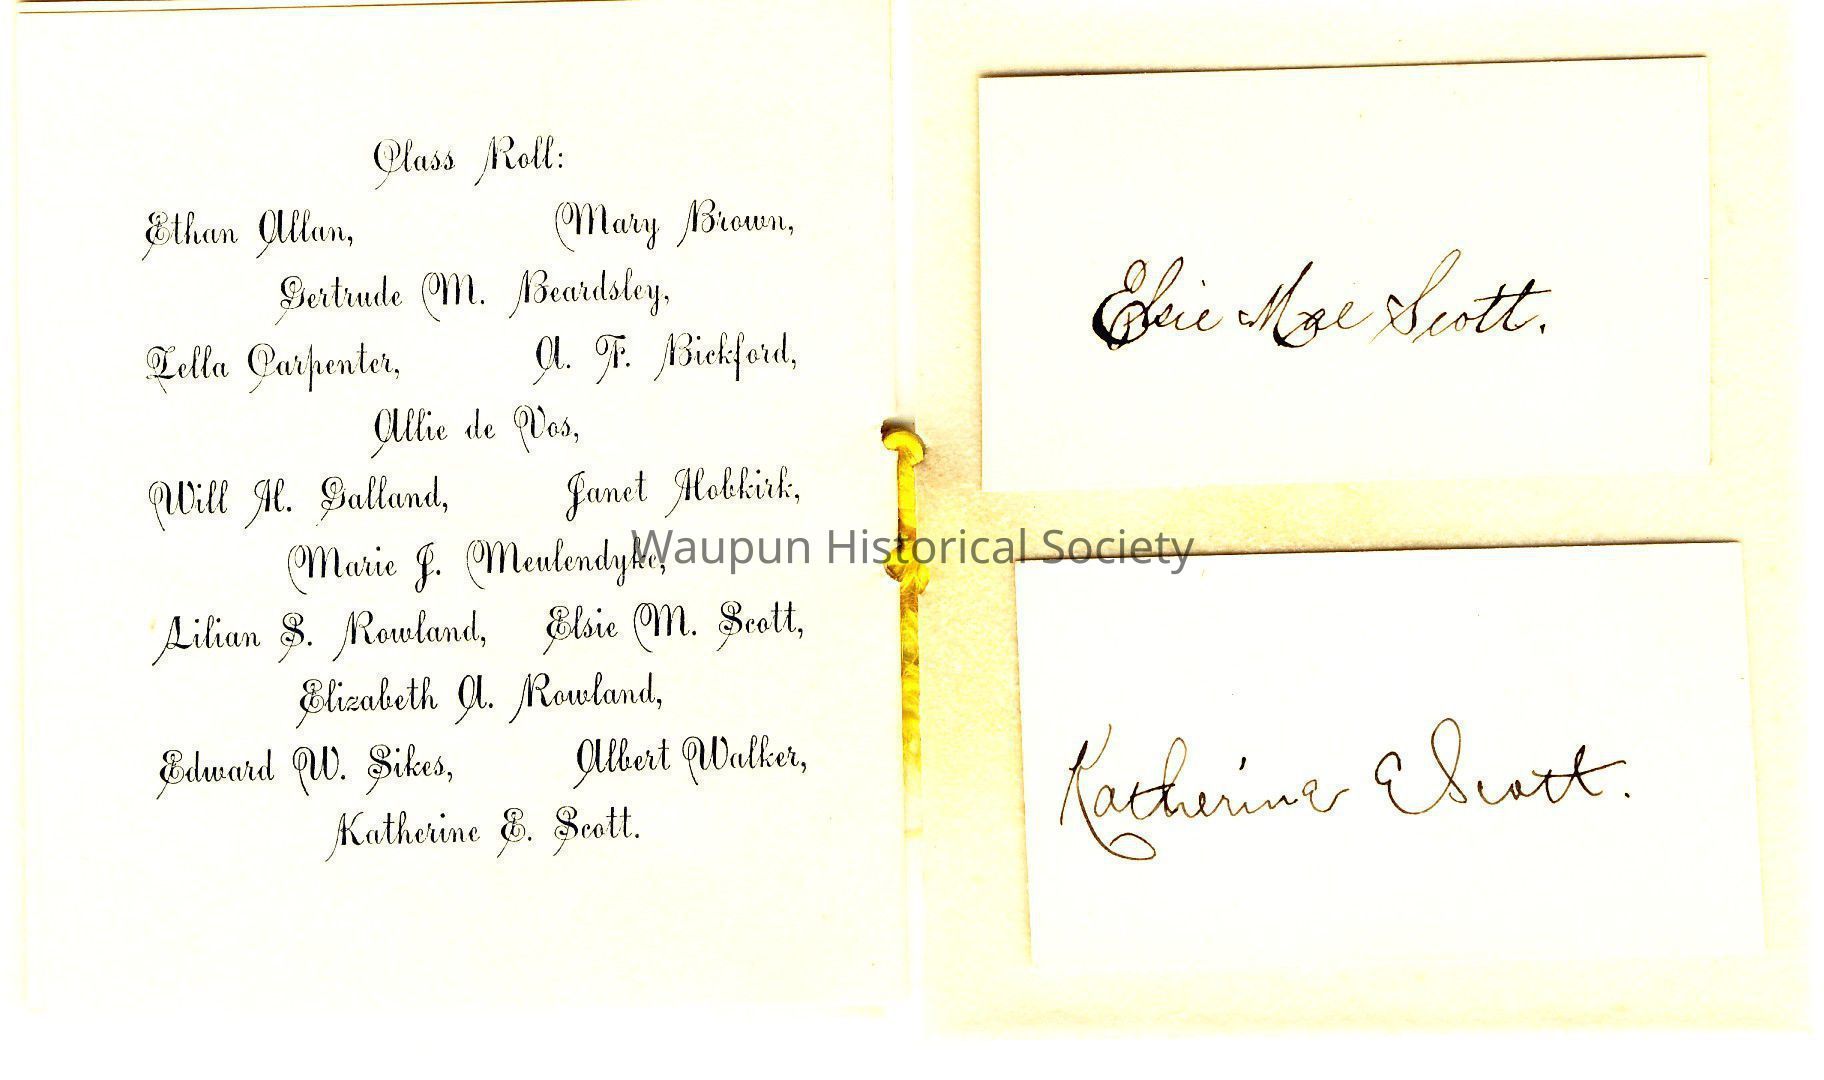 Class Roll:
Ethan Allan, Mary Brown,
Gertrude M. Beardsley,
Zella Carpenter, A. F. Bickford,
Allie de Vos,
Will H. Galland, Janet Hobkirk,
Marie J. Meulendyke,
Lilian S. Rowland, Elsie M. Scott,
Elizabeth A. Rowland,
Edward W. Sikes, Albert Walker,
Katherine E. Scott.
Elsie Mae Scott.
Katherine E Scott.
Waupun Historical Society